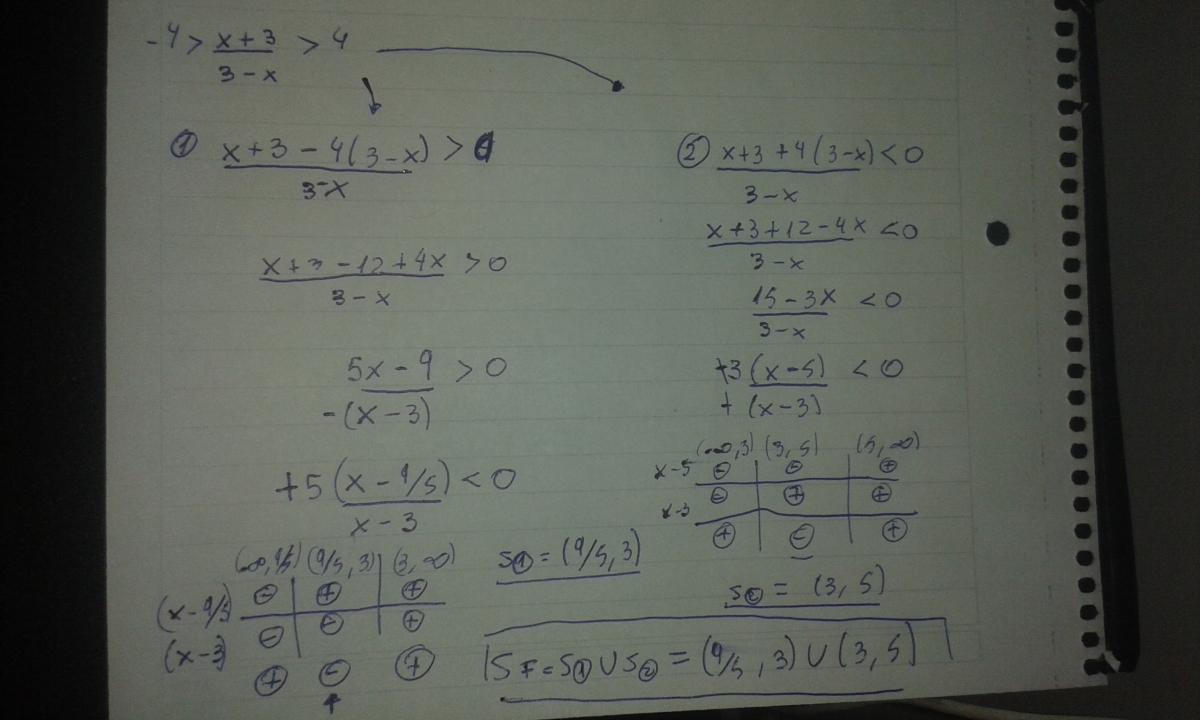 -4 > (x+3)/(3-x) > 4
① (x+3-4(3-x))/(3-x) > 0
(x+3-12+4x)/(3-x) > 0
(5x-9)/(-(x-3)) > 0
+5(x-9/5)/(x-3) < 0
(-∞,9/5) (9/5,3) (3,∞)
(x-9/5) ⊖ ⊕ ⊕
(x-3) ⊖ ⊖ ⊕
⊕ ⊖ ⊕
S① = (9/5,3)
② (x+3+4(3-x))/(3-x) < 0
(x+3+12-4x)/(3-x) < 0
(15-3x)/(3-x) < 0
+3(x-5)/+(x-3) < 0
(-∞,3) (3,5) (5,∞)
x-5 ⊖ ⊖ ⊕
x-3 ⊖ ⊕ ⊕
⊕ ⊖ ⊕
S② = (3,5)
SF = S① ∪ S② = (9/5,3) ∪ (3,5)